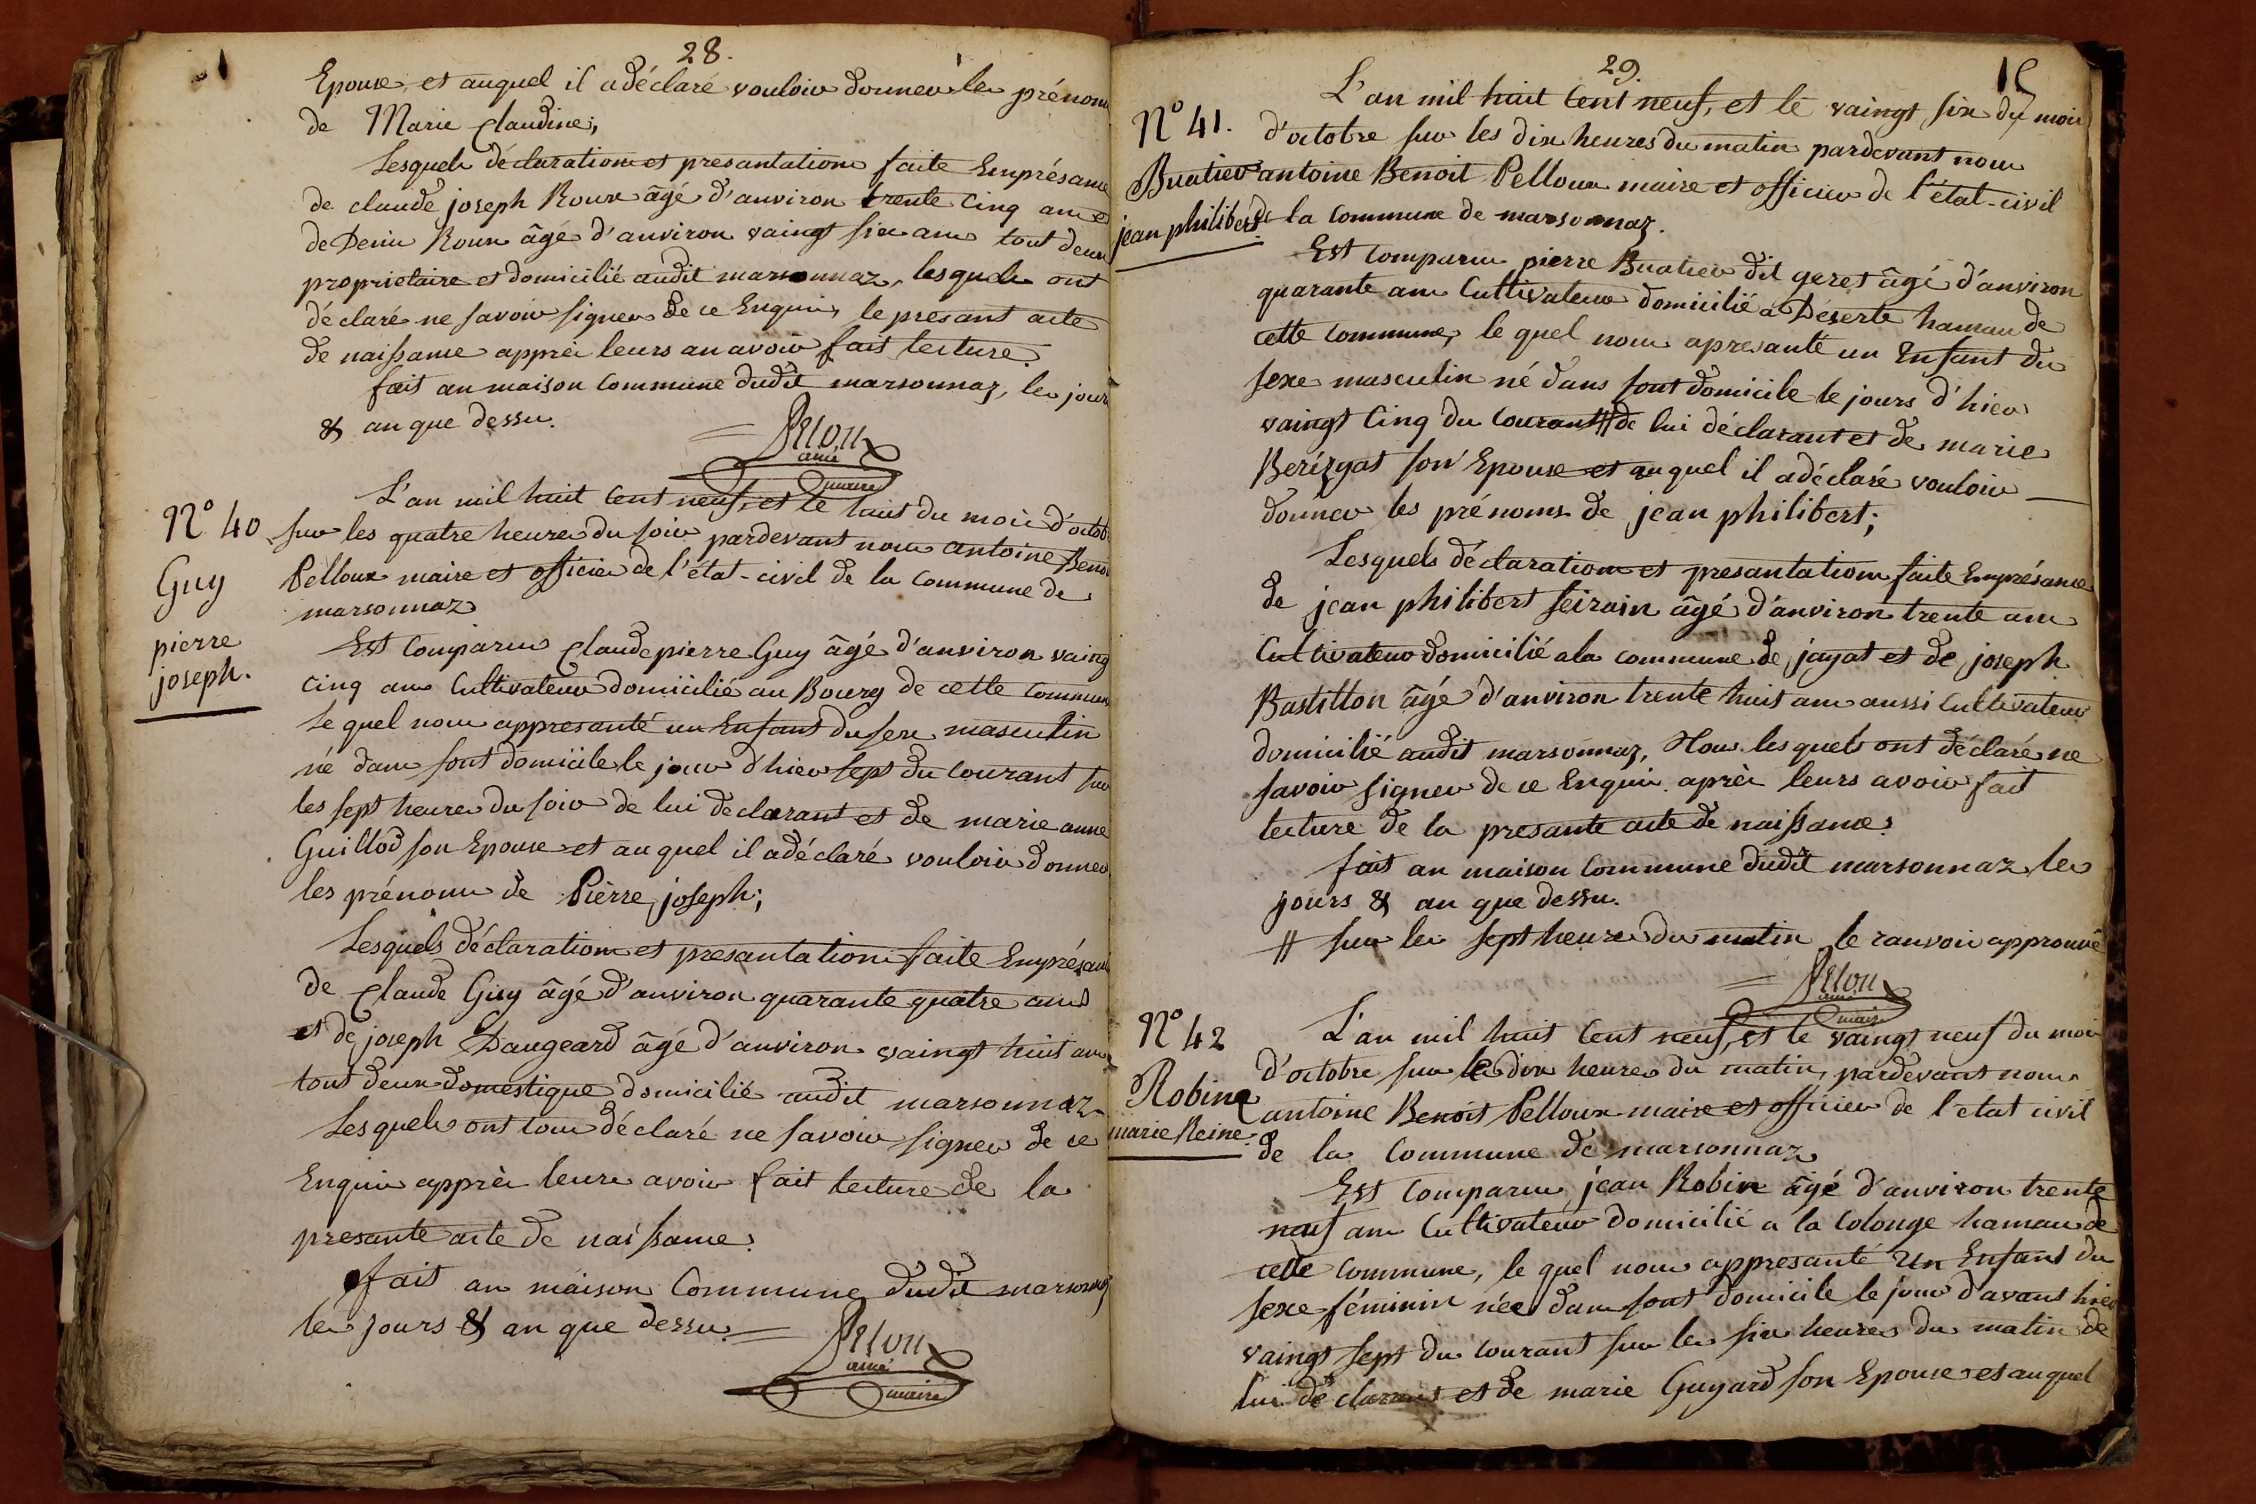 28.
Epouse, et auquel il a déclaré vouloir donner les prénoms
de Marie Claudine;
Lesquels déclaration et presantation faite Emprésance
de claude joseph Roux âgé d'anviron trente cinq ans et
de Denis Roux âgé d'anviron vaingt six ans tout deux
proprietaire et domicilié audit marsonnaz, lesquels ont
déclaré ne savoir signer de ce Enquis, le presant acte
de naissance apprès leurs an avoir fait lecture.
fait an maison Commune dudit marsonnaz, les jours
& an que dessu.
ainé
maire
N° 40
Guy
pierre
joseph.
L'an mil huit Cent neuf, et le huit du mois d'octob
sur les quatre heures du soir pardevant nous antoine Benoi
Pelloux maire et officier de l'état-civil de la Commune de
marsonnaz
Est Comparus Claude pierre Guy âgé d'anviron vaingt
cinq ans Cultivateur domicilié au Bourg de cette commune
le quel nous appresanté un Enfant du sexe masculin
né dans sont domicile le jour d'hier sept du courant sur
les sept heures du soir de lui déclarant et de marie anne
Guillod son Epouse et auquel il a déclaré vouloir donner
les prénoms de Pierre joseph;
Lesquels déclaration et presantation faite Emprésan
de Claude Guy âgé d'anviron quarante quatre ans
et de joseph Daugeard âgé d'anviron vaingt huit ans
tout deux domestique domicilié audit marsonnaz
Lesquels ont tous déclaré ne savoir signer de ce
Enquis apprès leurs avoir fait lecture de la
presante acte de naissance.
fait an maison Commune dudit marsonnaz
les jours & an que dessu.
ainé
maire
29.
15
N° 41.
Buatier
jean philibert
L'an mil huit Cent neuf, et le vaingt six du mois
d'octobre sur les dix heures du matin pardevant nous
antoine Benoit Pelloux maire et officier de l'état-civil
de la Commune de marsonnaz.
Est Comparus pierre Buatier dit geret âgé d'anviron
quarante ans Cultivateur domicilié a Déserte hamau de
cette Commune, le quel nous apresanté un Enfant du
sexe masculin né dans sont domicile le jours d'hier
vaingt Cinq du Courant # de lui déclarant et de marie
Berézyat son Epouse et auquel il a déclaré vouloir
donner les prénoms de jean philibert;
Lesquels déclaration et presantation faite Emprésance
de jean philibert feirain âgé d'anviron trente ans
Cultivateur domicilié a la commune de jayat et de joseph
Bastillon âgé d'anviron trente huit ans aussi Cultivateur
domicilié audit marsonnaz, Nous lesquels ont déclaré ne
savoir signer de ce Enquis après leurs avoir fait
lecture de la presante acte de naissance.
fait an maison Commune dudit marsonnaz les
jours & an que dessu.
# sur les sept heures du matin le ranvoi approuvé
ainé
maire
N° 42
Robin
marie Reine.
L'an mil huit Cent neuf, et le vaingt neuf du mois
d'octobre sur les dix heures du matin, pardevant nous
antoine Benoit Pelloux maire et officier de l'etat civil
de la Commune de marsonnaz
Est Comparus jean Robin âgé d'anviron trente
neuf ans Cultivateur domicilié a la Colonge hamau de
cette Commune, le quel nous appresanté un Enfant du
sexe féminin née dans sont domicile le jour d'avant hier
vaingt sept du courant sur les six heures du matin de
lui déclarant et de marie Guyard son Epouse et auquel